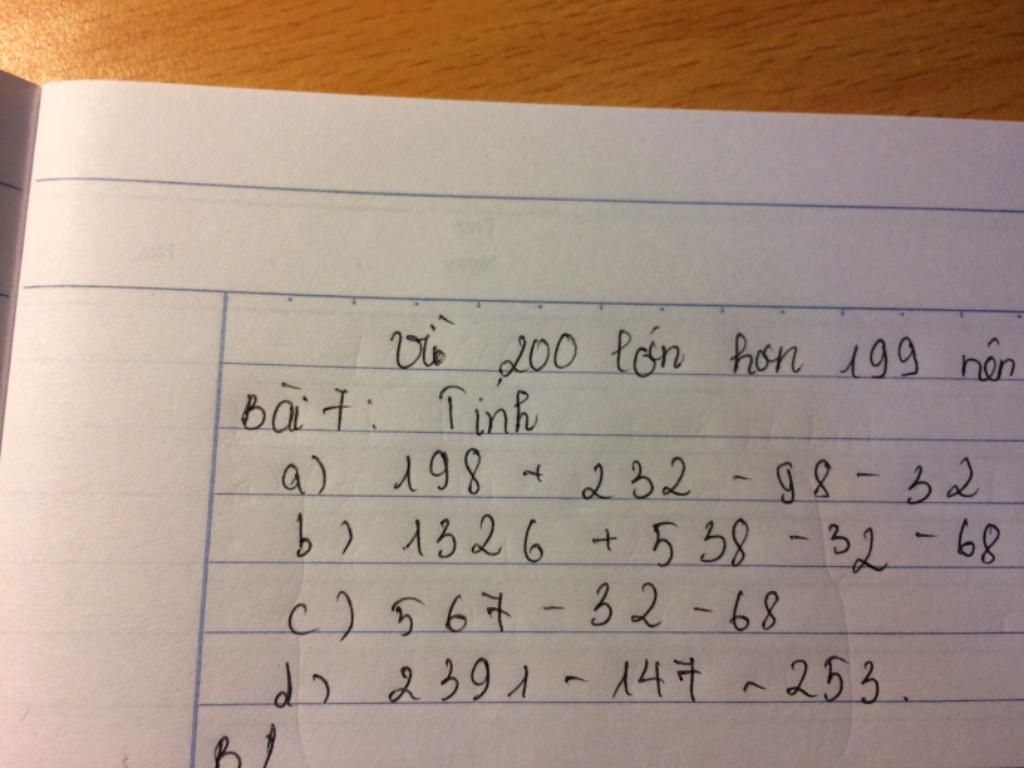 Vì 200 lớn hơn 199 nên
Bài 7: Tính
a) 198 + 232 - 98 - 32
b) 1326 + 538 - 32 - 68
c) 567 - 32 - 68
d) 2391 - 147 - 253.